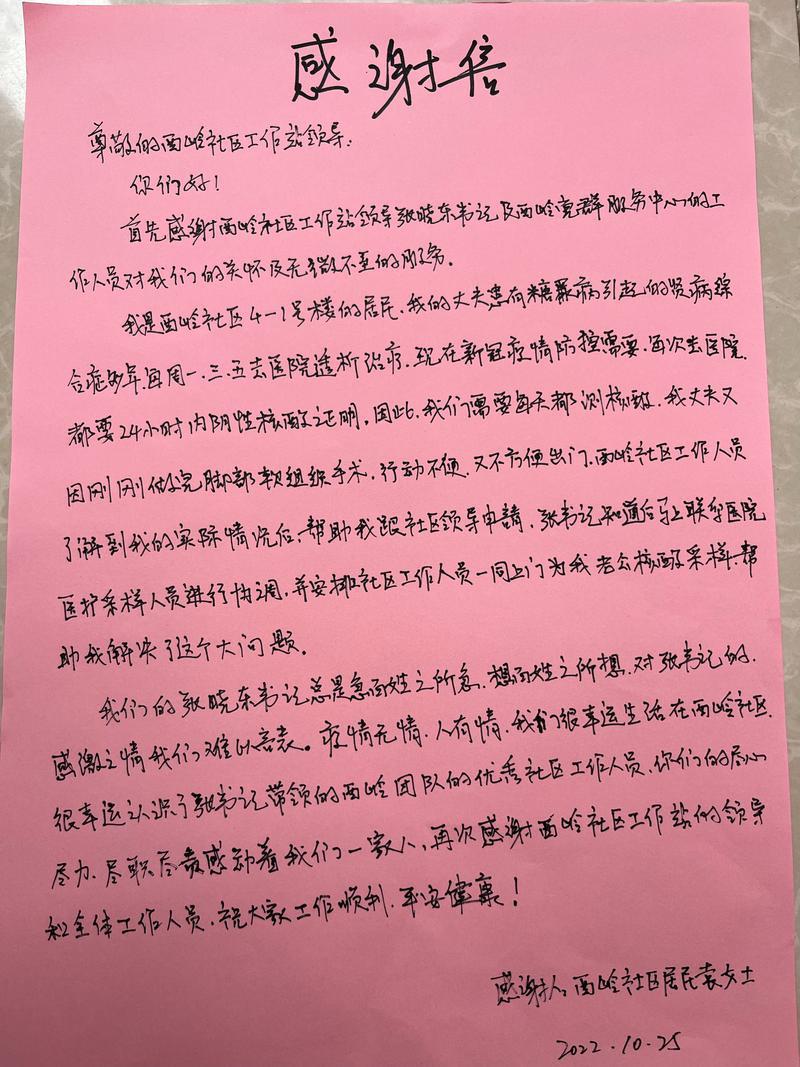 感谢信
尊敬的西岭社区工作站领导:
你们好!
首先感谢西岭社区工作站领导张晓东书记及西岭党群服务中心的工
作人员对我们的关怀及无微不至的服务。
我是西岭社区4-1号楼的居民,我的丈夫患有糖尿病引起的肾病综
合症多年,每周一、三、五去医院透析治疗,现在新冠疫情防控需要,每次去医院
都要24小时内阴性核酸证明。因此,我们需要每天都测核酸,我丈夫又
因刚刚做完脚部软组织手术,行动不便,又不方便出门。西岭社区工作人员
了解到我的实际情况后,帮助我跟社区领导申請,张书记知道后马上联系医院
医护采样人员进行协调,并安排社区工作人员一同上门为我老公核酸采样,帮
助我解决了这个大问题。
我们的张晓东书记总是急百姓之所急,想百姓之所想,对张书记的
感激之情我们难以言表。疫情无情,人有情,我们很幸运生活在西岭社区,
很幸运认识了张书记带领的西岭团队的优秀社区工作人员,你们的尽心
尽力、尽职尽责感动着我们一家人,再次感谢西岭社区工作站的领导
和全体工作人员,祝大家工作顺利,平安健康!
感谢人:西岭社区居民袁女士
2022.10.25